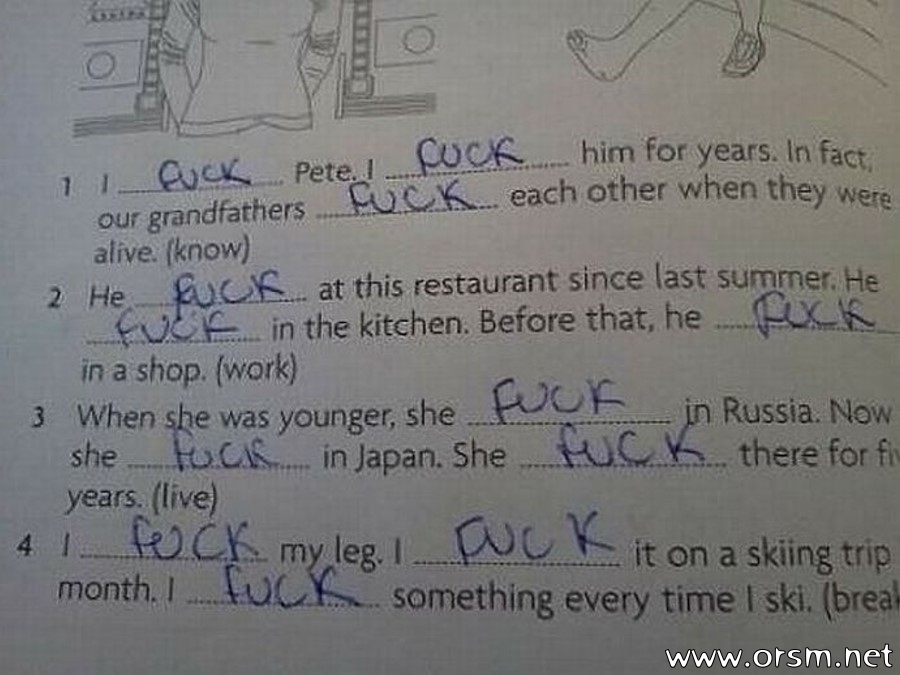 1 I fuck Pete. I fuck him for years. In fact,
our grandfathers fuck each other when they were
alive. (know)
2 He fuck at this restaurant since last summer. He
fuck in the kitchen. Before that, he fuck
in a shop. (work)
3 When she was younger, she fuck in Russia. Now
she fuck in Japan. She fuck there for fiv
years. (live)
4 I fuck my leg. I fuck it on a skiing trip
month. I fuck something every time I ski. (break
www.orsm.net